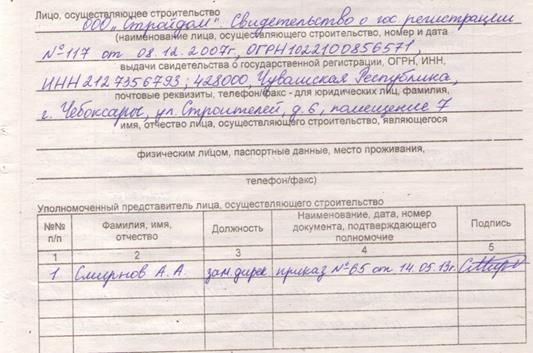 Лицо, осуществляющее строительство
ООО "Стройдом". Свидетельство о гос регистрации
(наименование лица, осуществляющего строительство, номер и дата
№117 от 08.12.2007г, ОГРН1022100856571,
выдачи свидетельства о государственной регистрации, ОГРН, ИНН,
ИНН2127356793; 428000, Чувашская Республика,
почтовые реквизиты, телефон/факс - для юридических лиц, фамилия,
г. Чебоксары, ул. Строителей, д.6, помещение 7
имя, отчество лица, осуществляющего строительство, являющегося
физическим лицом, паспортные данные, место проживания,
телефон/факс)
Уполномоченный представитель лица, осуществляющего строительство
№№ п/п
Фамилия, имя, отчество
Должность
Наименование, дата, номер документа, подтверждающего полномочие
Подпись
1 2 3 4 5
1 Смирнов А.А. зам.дирек приказ №65 от 14.05.13г.